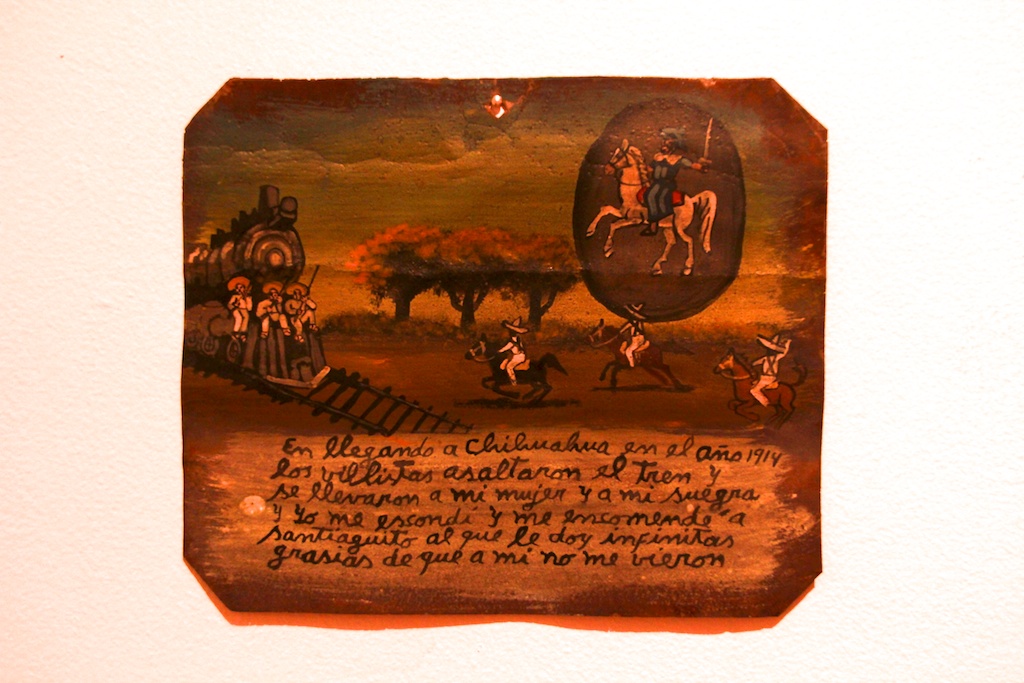 En llegando a Chihuahua en el año 1914
los villistas asaltaron el tren y
se llevaron a mi mujer y a mi suegra
y yo me escondí y me encomendé a
santiaguito al que le doy infinitas
grasias de que a mi no me vieron